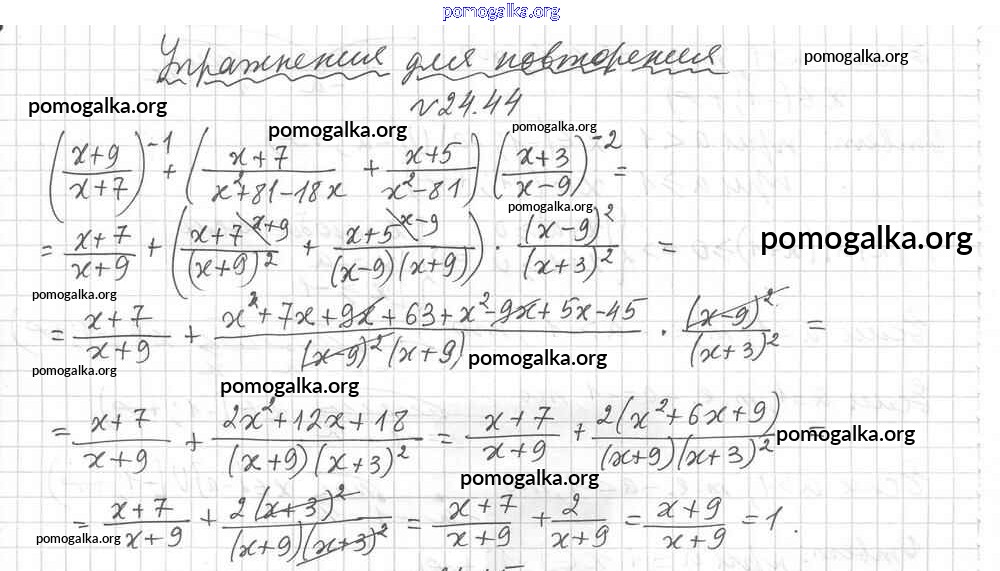 pomogalka.org
Упражнения для повторения
pomogalka.org
pomogalka.org
№24.44
pomogalka.org
pomogalka.org
((x+9)/(x+7))^-1 + ((x+7)/(x²+81-18x) + (x+5)/(x²-81)) ((x+3)/(x-9))^-2 =
pomogalka.org
= (x+7)/(x+9) + ((x+7 \ x+9)/((x+9)²) + (x+5 \ x-9)/((x-9)(x+9))) · (x-9)²/(x+3)² =
pomogalka.org
pomogalka.org
= (x+7)/(x+9) + (x²+7x+9x+63+x²-9x+5x-45)/((x-9)²(x+9)) · (x-9)²/(x+3)² =
pomogalka.org
pomogalka.org
pomogalka.org
= (x+7)/(x+9) + (2x²+12x+18)/((x+9)(x+3)²) = (x+7)/(x+9) + 2(x²+6x+9)/((x+9)(x+3)²) =
pomogalka.org
pomogalka.org
= (x+7)/(x+9) + 2(x+3)²/((x+9)(x+3)²) = (x+7)/(x+9) + 2/(x+9) = (x+9)/(x+9) = 1.
pomogalka.org
pomogalka.org